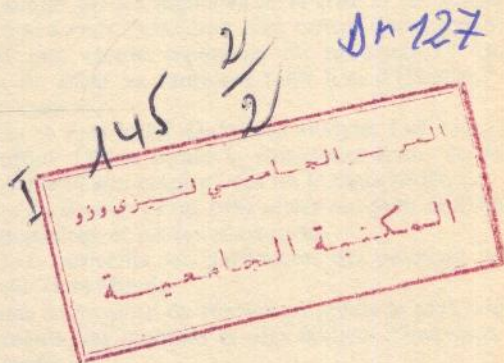 Dr 127
I 145 2/2
المركز الجامعي لتيزي وزو
المكتبة الجامعية